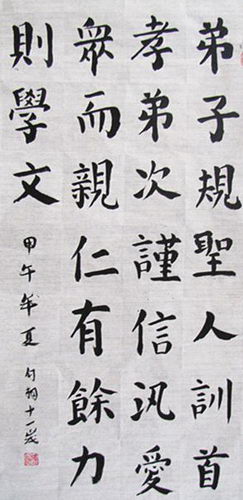 弟子規聖人訓首
孝弟次謹信汎愛
眾而親仁有餘力
則學文
甲午年夏 竹翔十一歲